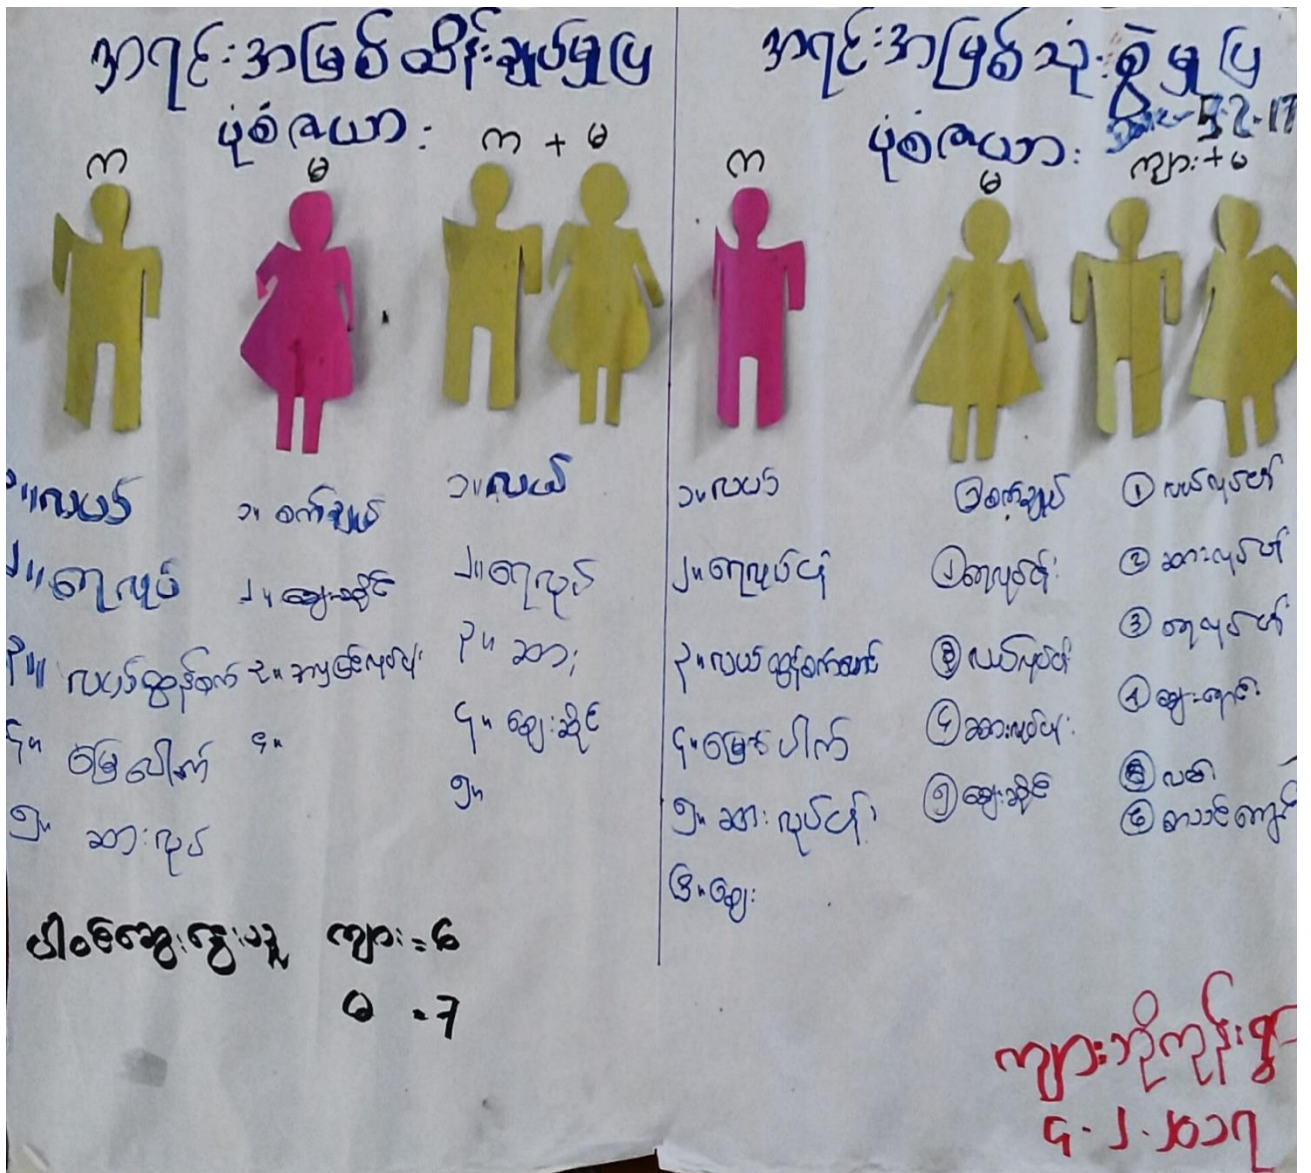 အရင်းအမြစ်ထိန်းချုပ်မှုပြ
ပုံစံဇယား
က
မ
က + မ
၁။ လယ်
၂။ ရေလုပ်
၃။ လယ်ထွန်စက်
၄။ မြေပေါက်
၅။ ဆားလုပ်
၁။ စက်ချုပ်
၂။ ဈေးဆိုင်
၃။
၄။
၁။ လယ်
၂။ ရေလုပ်
၃။ ဆား
၄။ ဈေးဆိုင်
၅။
ပါဝင်ဆွေးနွေးသူ ကျား = ၆
မ = ၇
အရင်းအမြစ်သုံးစွဲမှုပြ
ပုံစံဇယား
5.2.17
က
မ
ကျား + မ
၁။ လယ်
၂။ ရေလုပ်ငန်း
၃။ လယ်ထွန်စက်
၄။ မြေပေါက်
၅။ ဆားလုပ်ငန်း
၆။ ဈေး
၁ စက်ချုပ်
၂ ရေလုပ်ငန်း
၃ လယ်လုပ်ငန်း
၄ ဆားလုပ်ငန်း
၅ ဈေးဆိုင်
၁ လယ်လုပ်ငန်း
၂ ဆားလုပ်ငန်း
၃ ရေလုပ်ငန်း
၄ ဈေးရောင်း
၅
၆ စာသင်ကျောင်း
၄.၂.၂၀၁၇